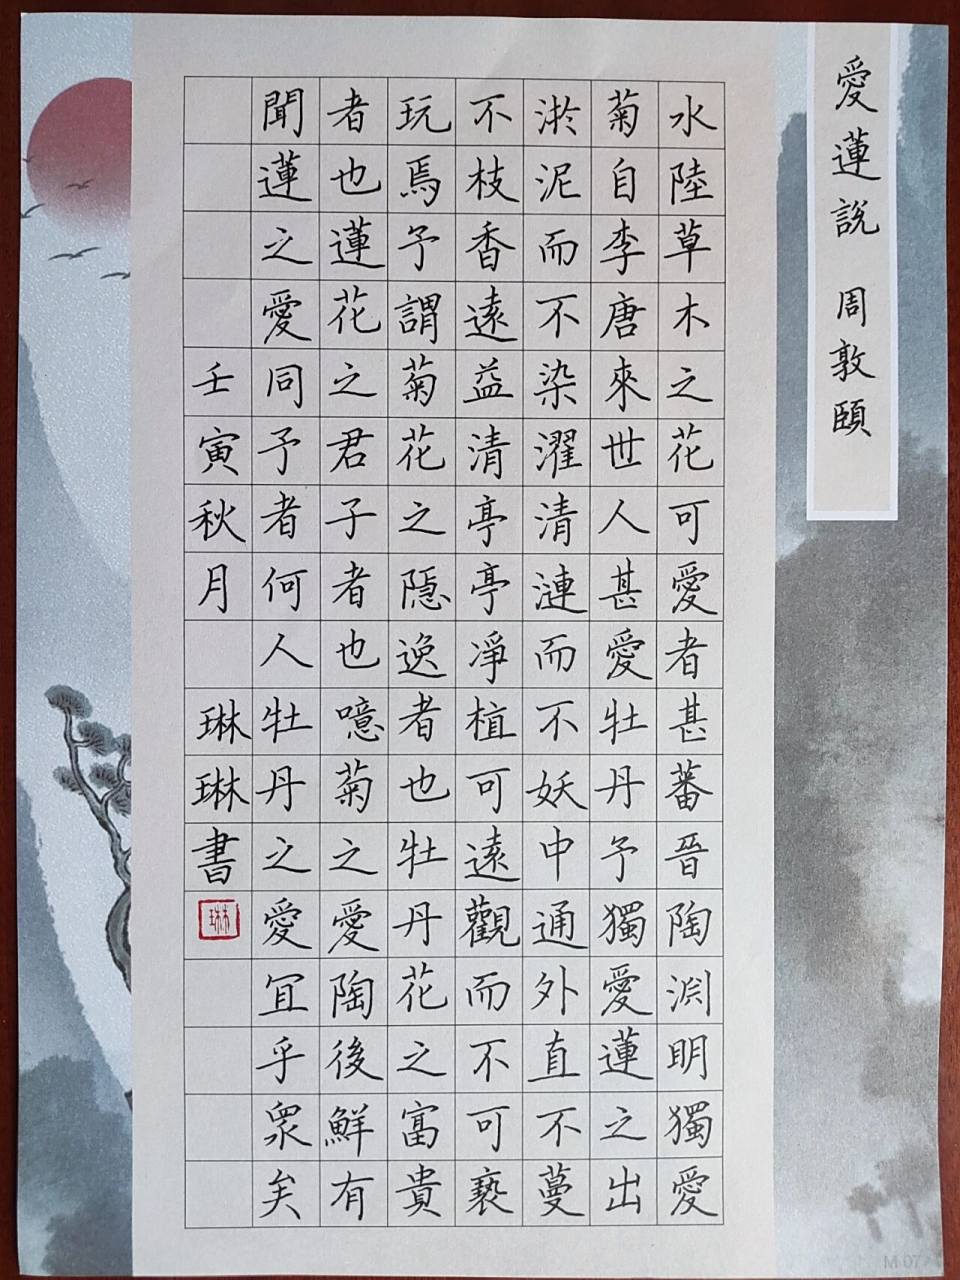 愛蓮說 周敦頤
水陸草木之花可愛者甚蕃晉陶淵明獨愛
菊自李唐來世人甚愛牡丹予獨愛蓮之出
淤泥而不染濯清漣而不妖中通外直不蔓
不枝香遠益清亭亭凈植可遠觀而不可褻
玩焉予謂菊花之隱逸者也牡丹花之富貴
者也蓮花之君子者也噫菊之愛陶後鮮有
聞蓮之愛同予者何人牡丹之愛宜乎眾矣
壬寅秋月 琳琳書
琳
M 07